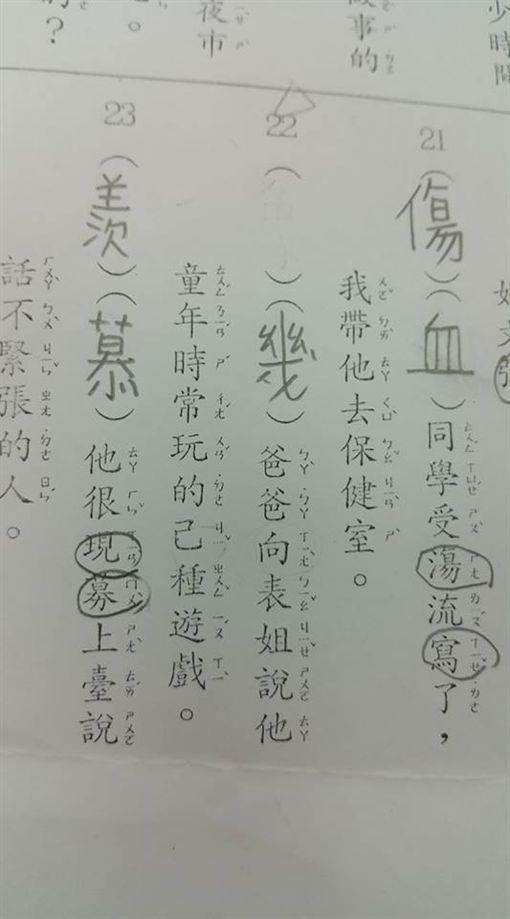 少時間
事的
夜市
。
？
21（傷）（血）同學受蕩流寫了，
我帶他去保健室。
22（ ）（幾）爸爸向表姐說他
童年時常玩的己種遊戲。
23（羨）（慕）他很現募上臺說
話不緊張的人。